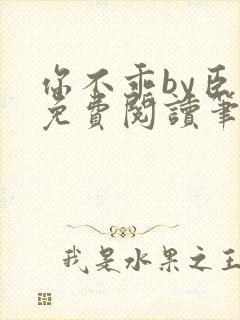 你不乖by臣
免費閱讀筆
我是水果之王